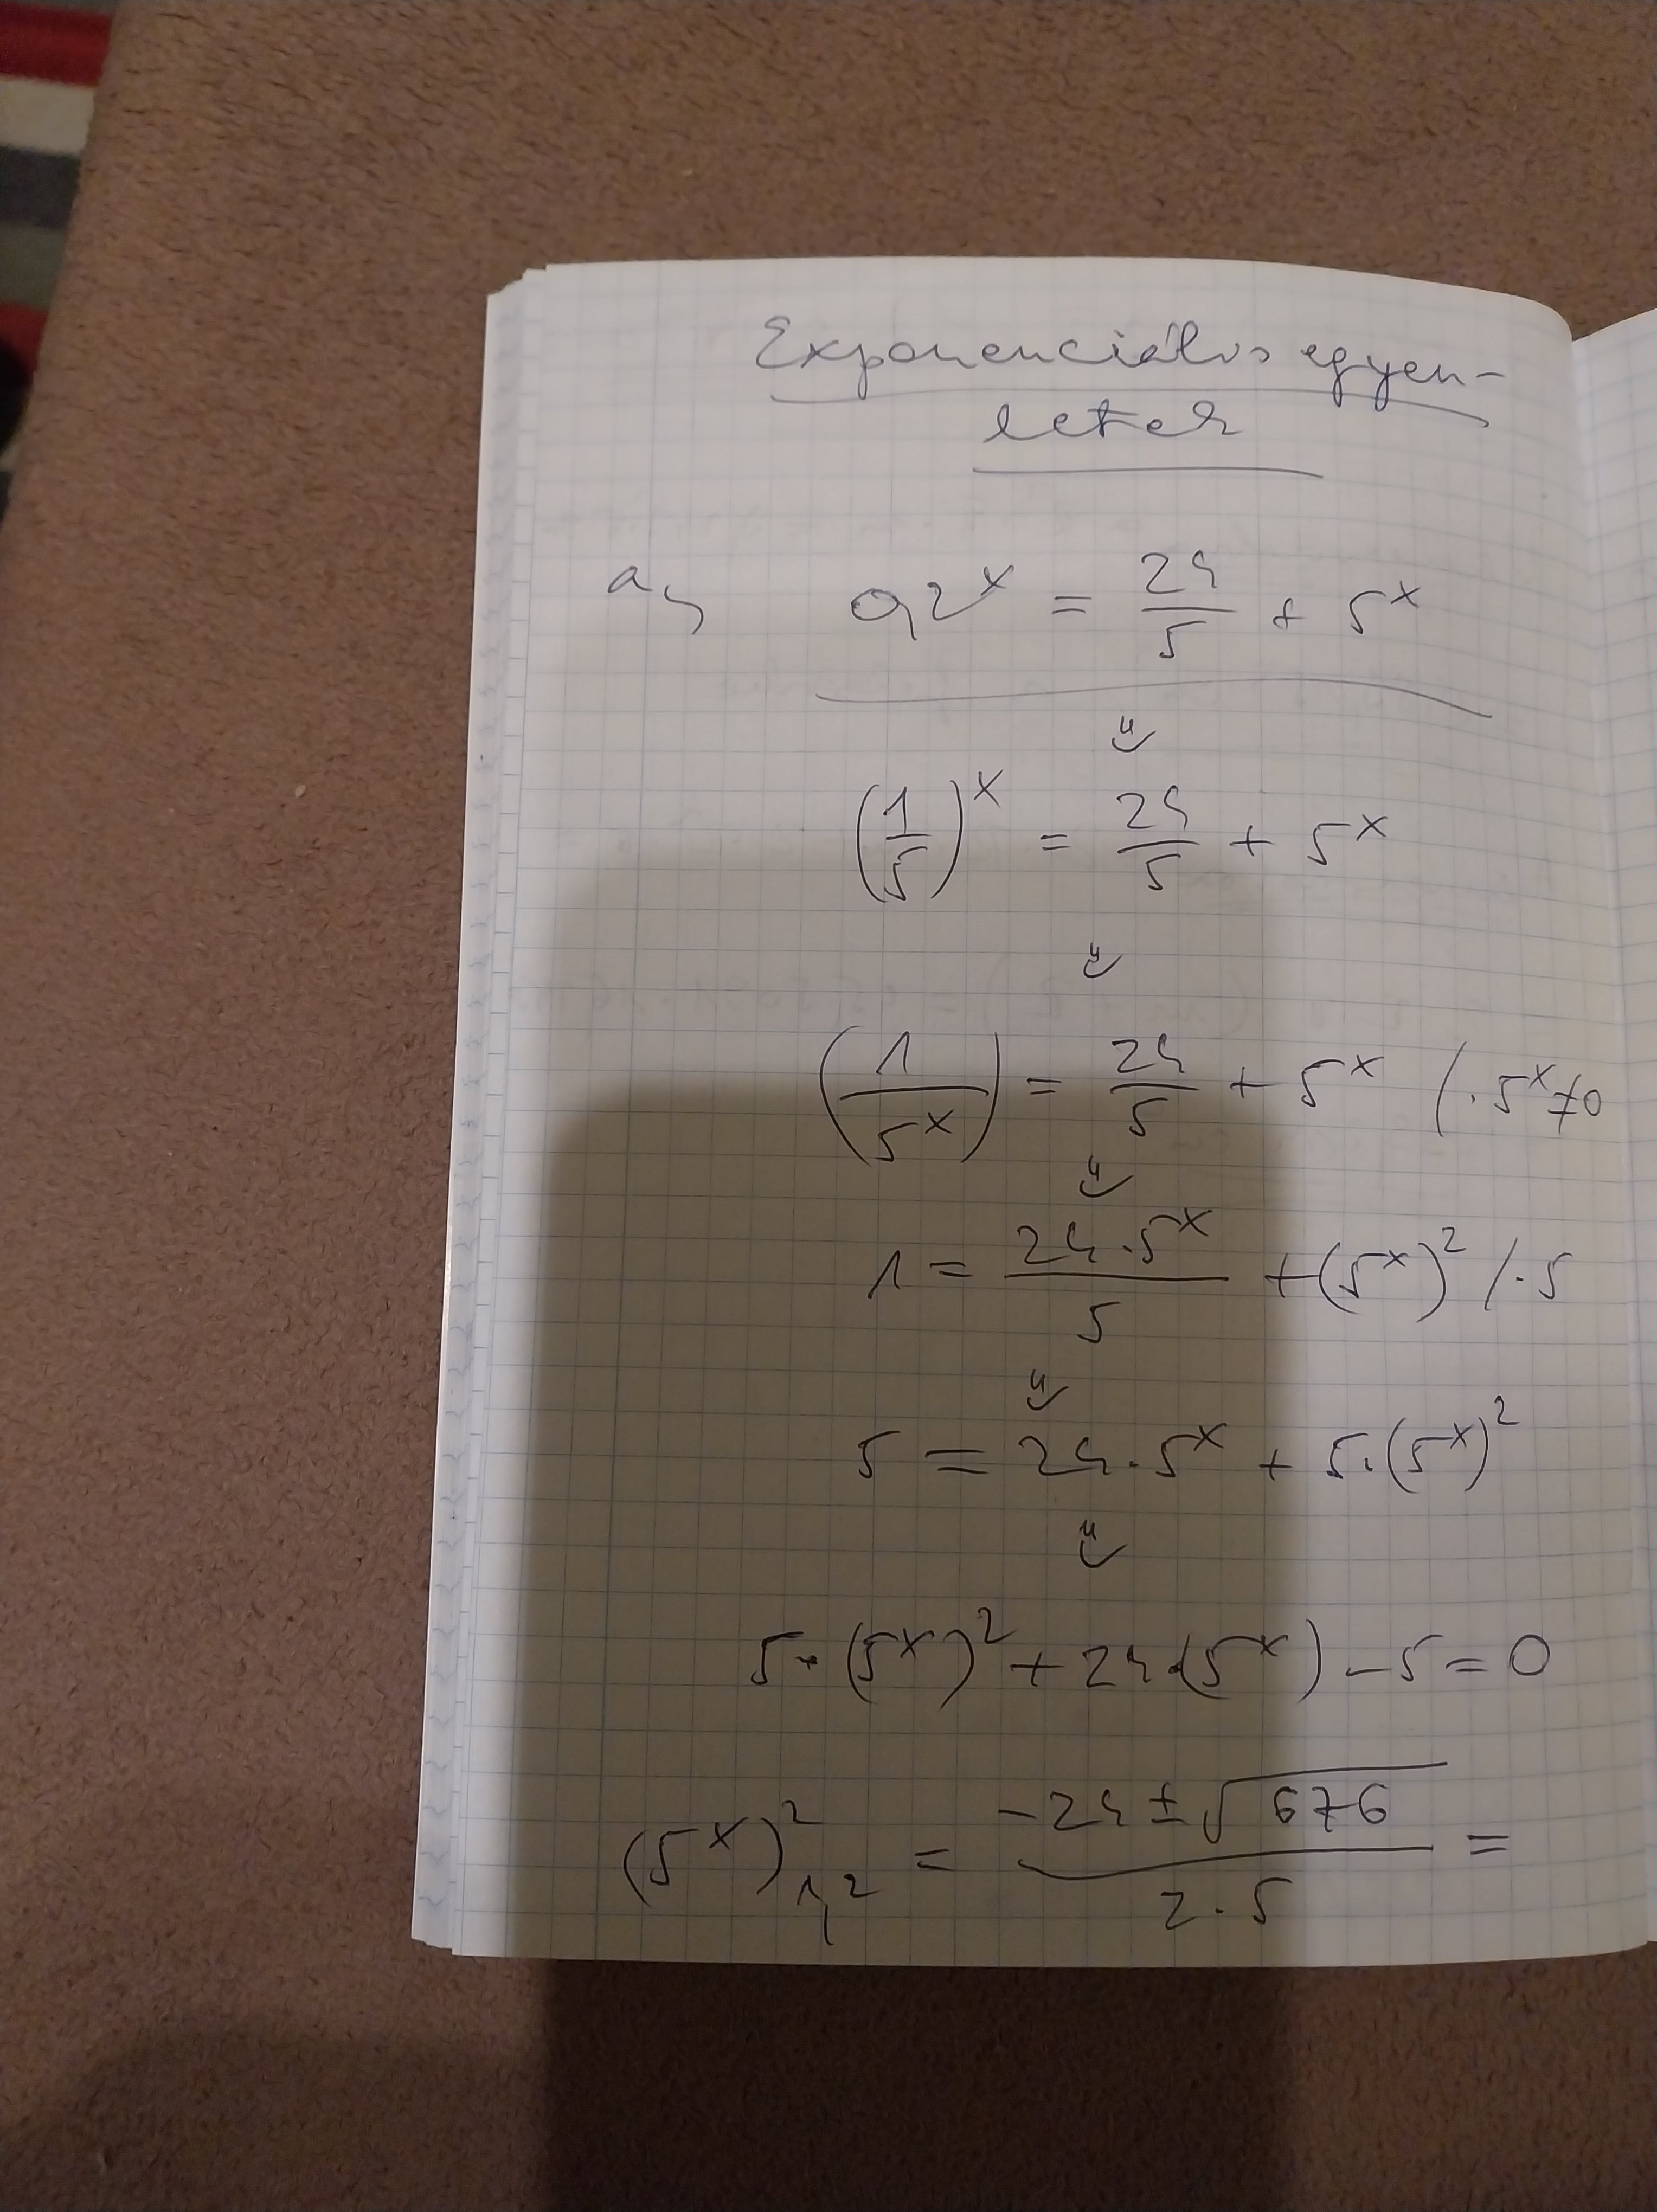 Exponenciális egyen-
letek
a, 0,2^x = 24/5 + 5^x
(1/5)^x = 24/5 + 5^x
(1/5^x) = 24/5 + 5^x /·5^x≠0
1 = 24·5^x/5 + (5^x)^2 /·5
5 = 24·5^x + 5·(5^x)^2
5·(5^x)^2 + 24·(5^x) - 5 = 0
(5^x)^2_1,2 = -24±√676/2·5 =